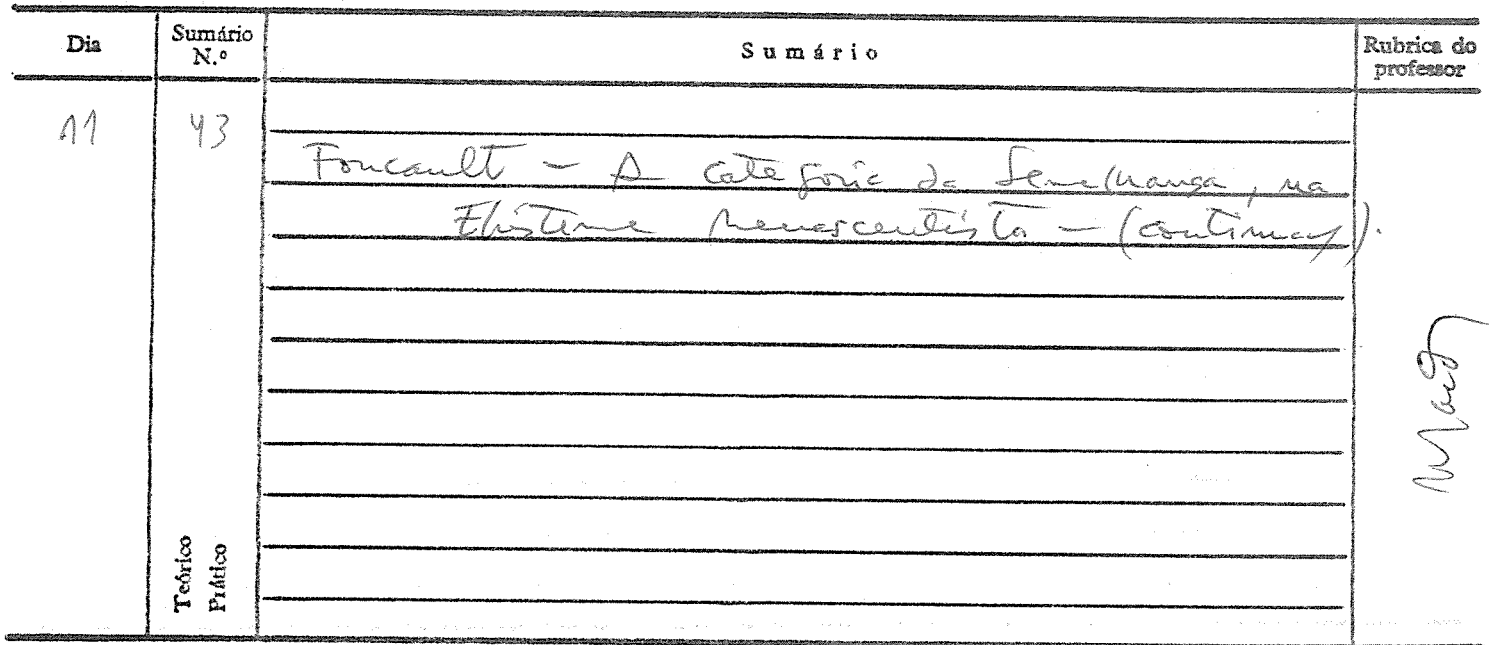 Dia
Sumário N.º
Sumário
Rubrica do professor
11
43
Foucault - A categoria da Semelhança, na
Episteme renascentista - (continuaç).
Teórico
Prático